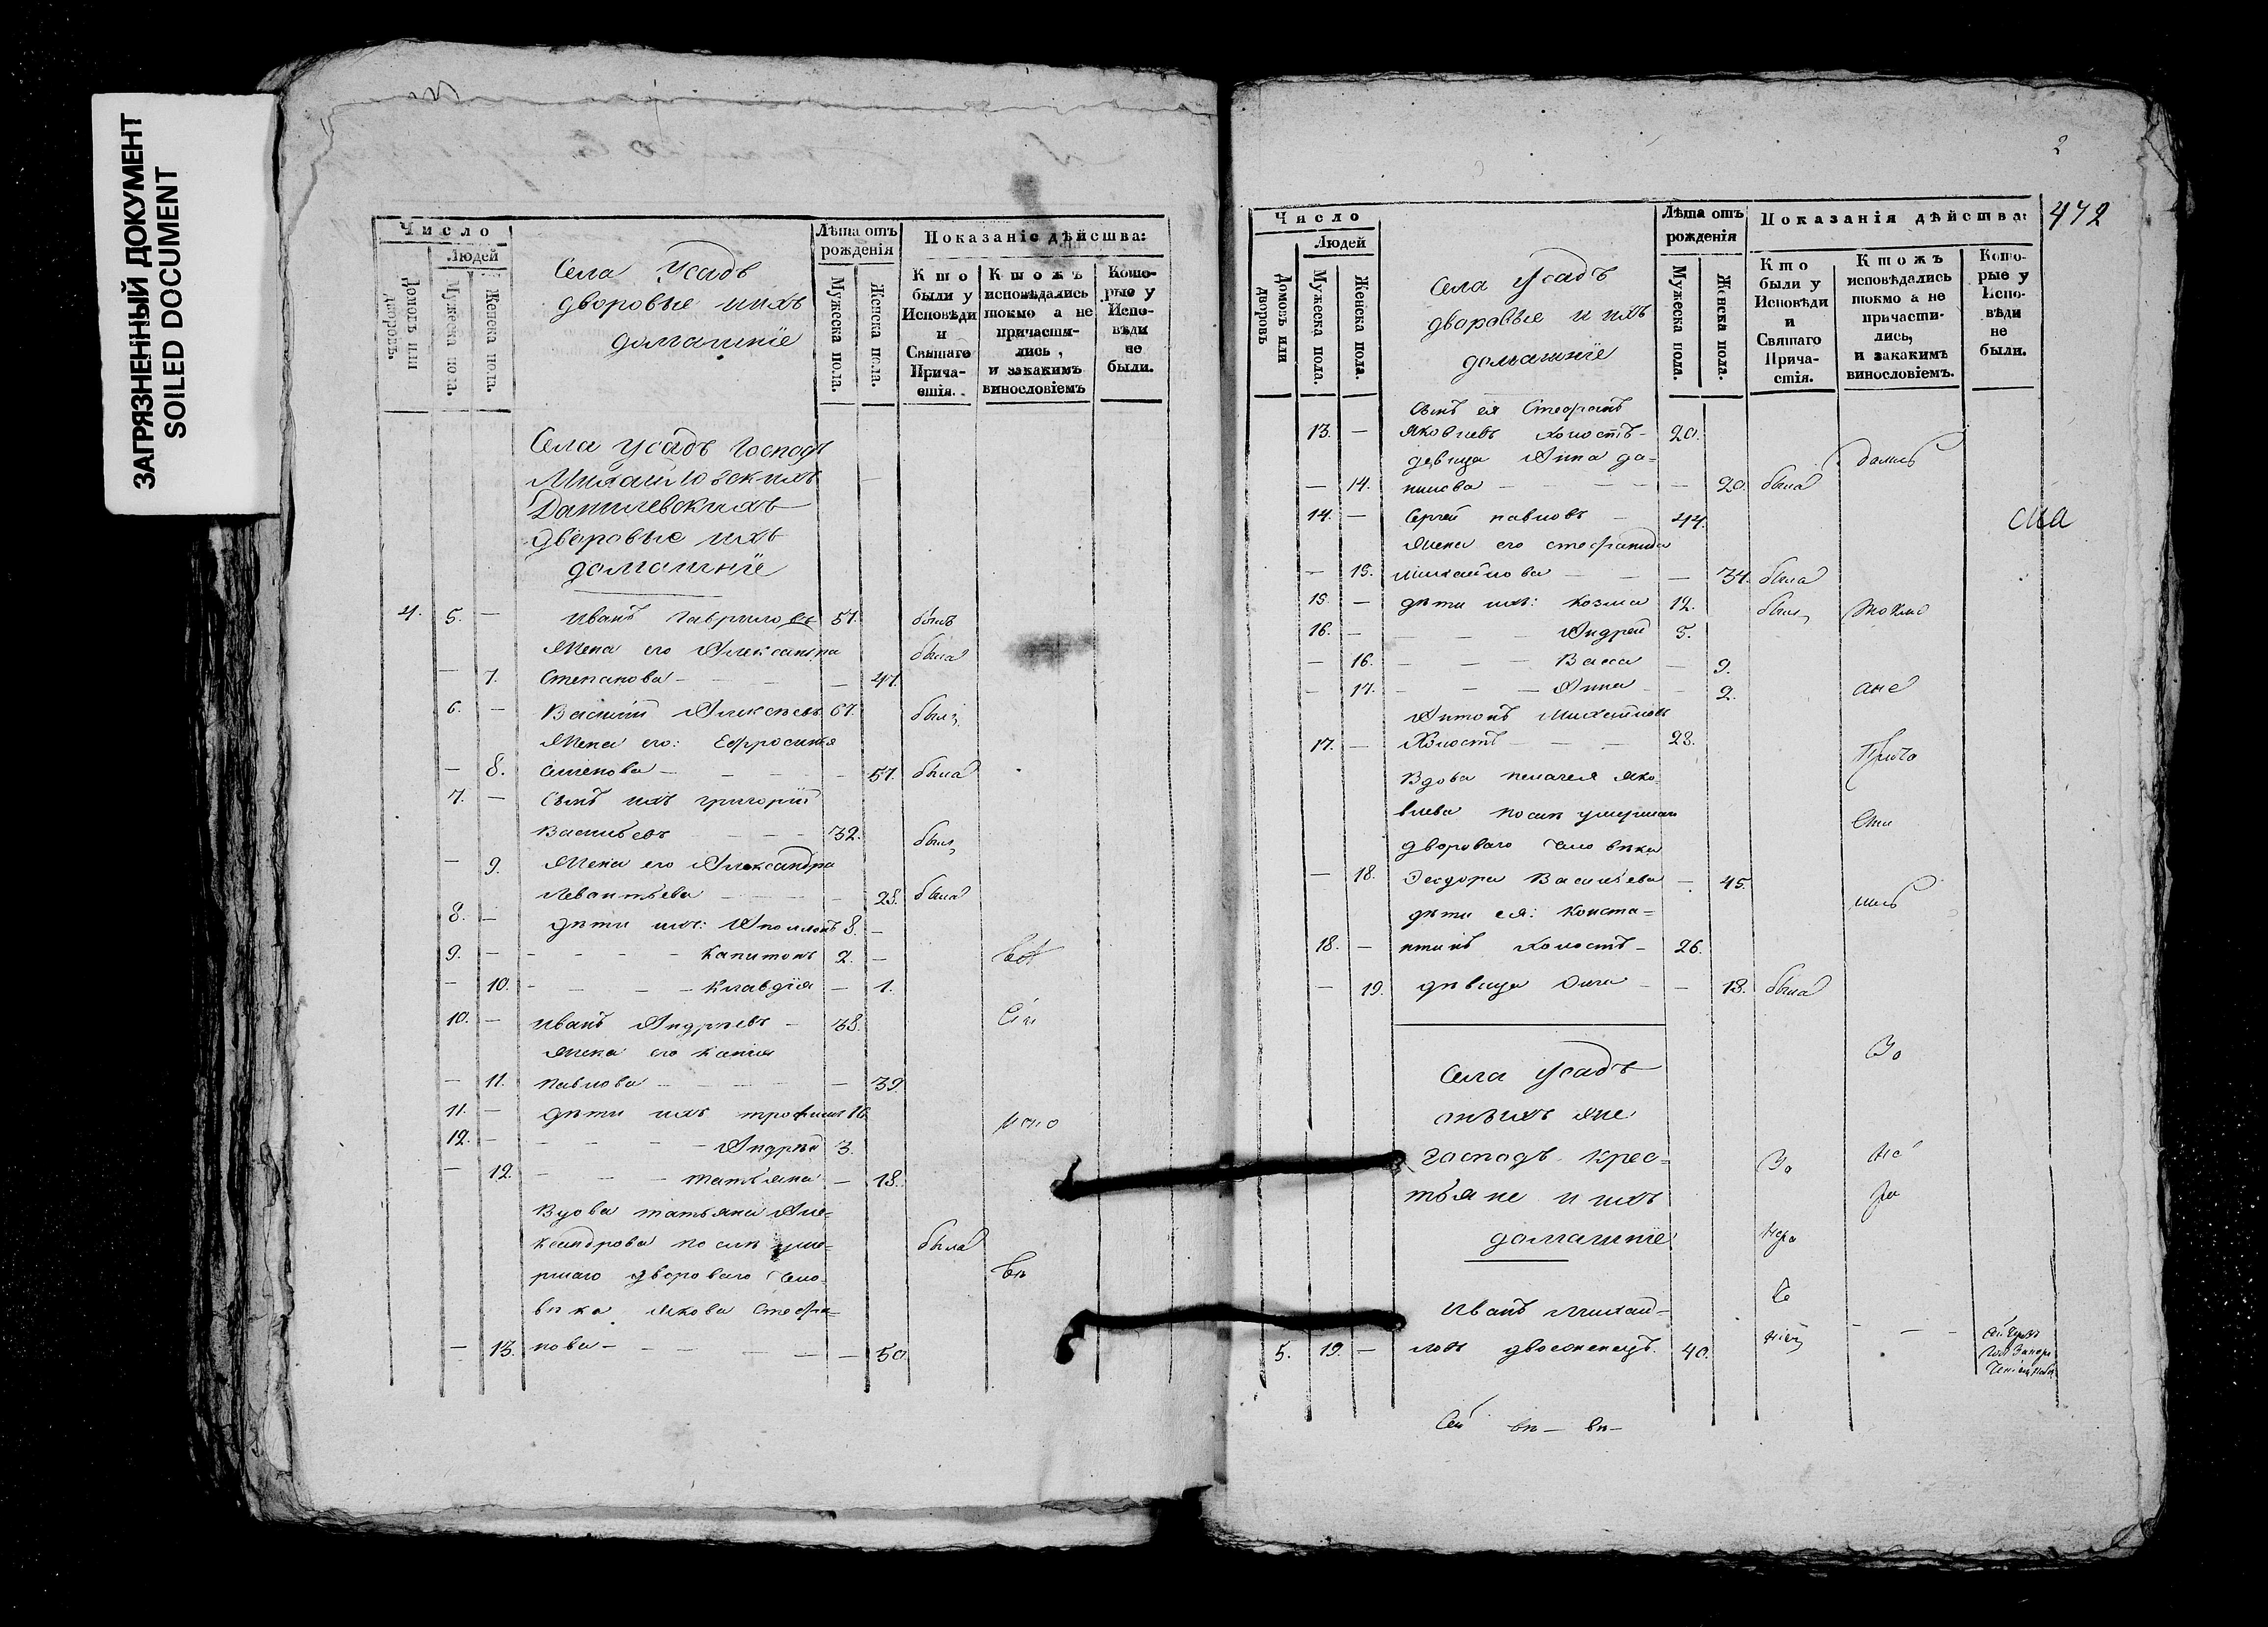 ЗАГРЯЗНЕННЫЙ ДОКУМЕНТ
SOILED DOCUMENT
Число
Людей
Домовъ или дворовъ.
Мужеска пола.
Женска пола.
Села Усадъ
дворовые и ихъ
домашнїе
Лѣта отъ рожденїя
Мужеска пола.
Женска пола.
Показанїе дѣйства:
Кто были у Исповѣди и Святаго Причастія.
Ктожъ исповѣдались токмо а не причастились, и закакимъ винословіемъ
Которые у Исповѣди не были.
Села Усадъ Господъ
Михайловскихъ
Данилевскихъ
дворовые ихъ
домашнїе
4. 5. — Иванъ Гавриловъ 57. былъ
Жена его Александра была
— 7. Степанова — — — — 47.
6. — Василїй Алексѣевъ 67. былъ
Жена его: Ефросинья
— 8. Симен​ова — — — — 57. была
7. — Сынъ ихъ Григорїй
Васильевъ — — — 32. былъ
— 9. Жена его Александра
Левантьева — — — — 28. была
8. — дѣти ихъ: Аполлонъ 8. —
9. — — — — — Капитонъ 2. — всѣ
— 10. — — — — Клавдїя — 1.
10. — Иванъ Андреевъ — 38. Сїи
Жена его
— 11. Павлова — — — — — 39.
11. — дѣти ихъ Трофимъ 16.
12. — — — — — Андрей 3.
— 12. — — — Татьяна — 18.
Вдова Татьяна Але-
ксандрова послѣ уме-
ршаго двороваго чело-
вѣка Якова Стефа-
нова — — — — — —
была
— 13. 50.
2
472
Число
Людей
Домовъ или дворовъ
Мужеска пола.
Женска пола.
Села Усадъ
дворовые и ихъ
домашнїе
Лѣта отъ рожденія
Мужеска пола.
Женска пола.
Показанія дѣйства:
Кто были у Исповѣди и Святаго Причастія.
Ктожъ исповѣдались токмо а не причастились, и закакимъ винословіемъ.
Которые у Исповѣди не были.
Сынъ ея Стефанъ
13. — Яковлевъ холостъ — 20.
дѣвица Анна Да-
— 14. нилова — — — — — 20. была
14. — Сергей Павловъ — 44.
Жена его Стефанида
сиа
— 15. Михайлова — — — 34. была
15. — дѣти ихъ: Козма 12. былъ токмо
16. — — — — Андрей 5.
— 16. — — — Васса — 9.
— 17. — — — Анна — — 2. ане
Антонъ Михайловъ
17. — Холостъ — — — 28. Прича
Вдова Пелагея Яко-
влева послѣ умершаго
сти
двороваго человѣка
— 18. Ѳедора Васильева — 45.
лись
дѣти ея: Конста-
18. — нтинъ холостъ — 26.
— 19. дѣвица Ольга — — 18. была
Села Усадъ
тѣхъ же
господъ крес-
тьяне и ихъ
домашнїе
За
За
не
ра
нера
Иванъ Михай-
5. 19. — ловъ двоеженецъ. 40.